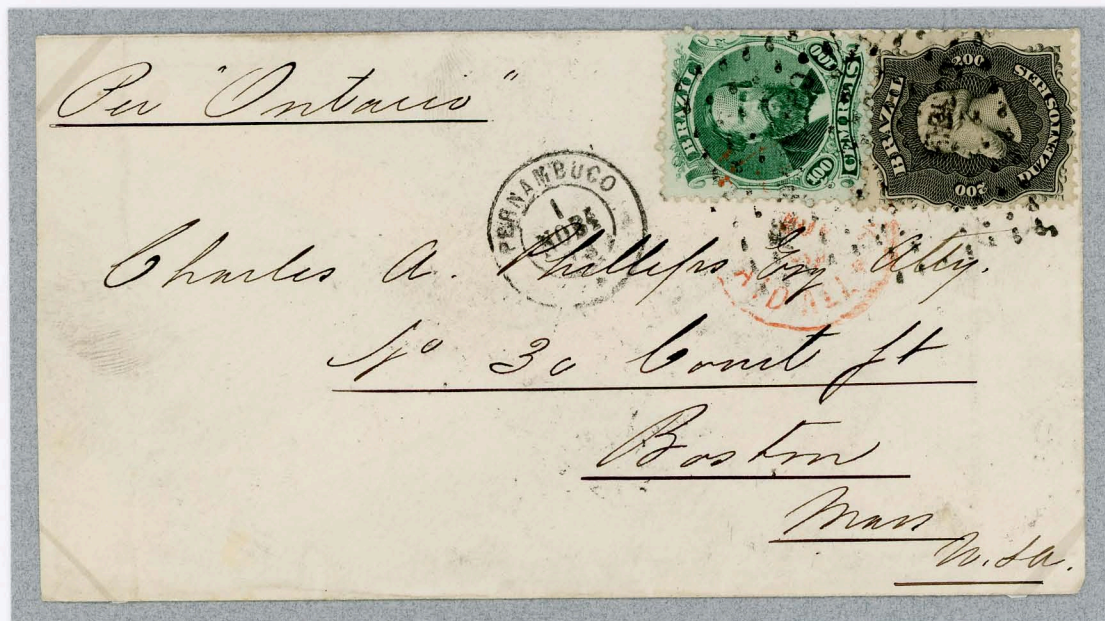 Per "Ontario"
BRAZIL
100
100
CEM REIS
BRAZIL
200
200
DUZENTOS REIS
PERNAMBUCO
1
Charles A. Phillips Esq Atty.
No 30 Court St
Boston
Mass
U.S.A.
PAID ALL